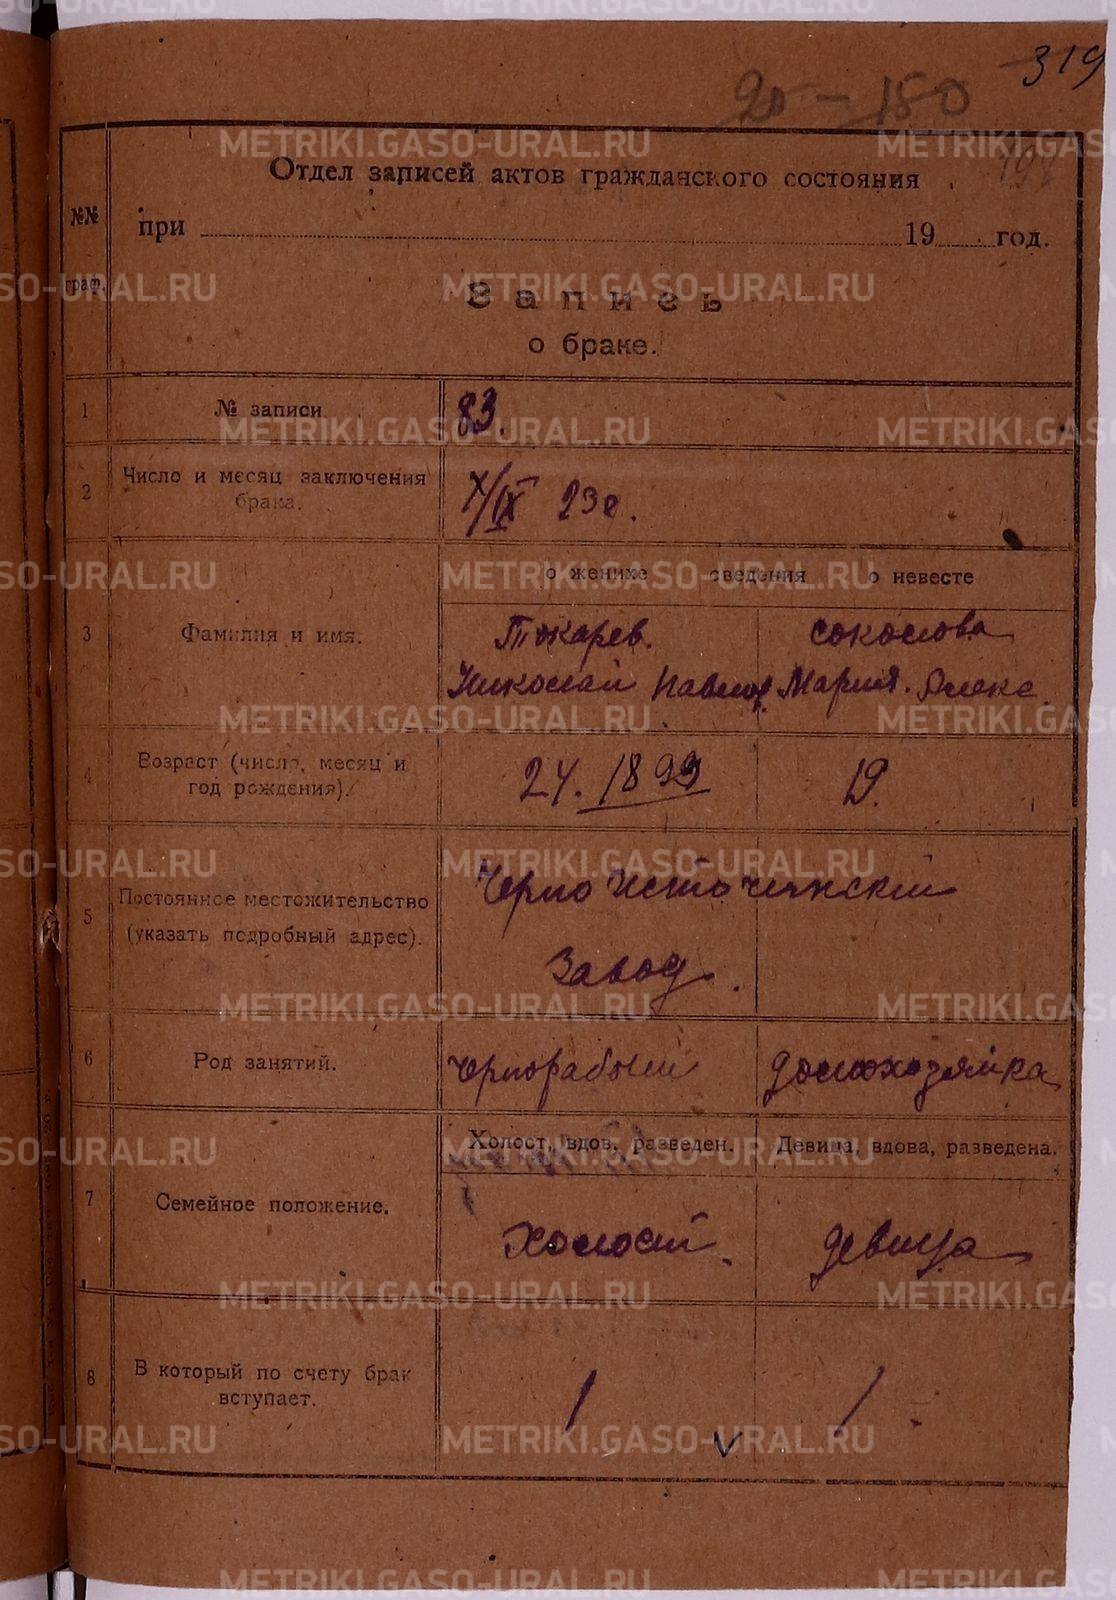 319
90 – 150
Отдел записей актов гражданского состояния
№№ граф.
при 19 год.
Запись
о браке.
1 № записи 83.
2 Число и месяц заключения брака. X/IX 23г.
о женихе сведения о невесте
3 Фамилия и имя. Токарев. Соколова
Николай Павлов. Мария. Алекс
4 Возраст (число, месяц и год рождения). 24. 1899 19.
5 Постоянное местожительство (указать подробный адрес). Черно Источинский
Завод.
6 Род занятий. Чернорабочий домохозяйка
Холост, вдов, разведен. Девица, вдова, разведена.
7 Семейное положение. Холост. девица
8 В который по счету брак вступает. 1 1
METRIKI.GASO-URAL.RU